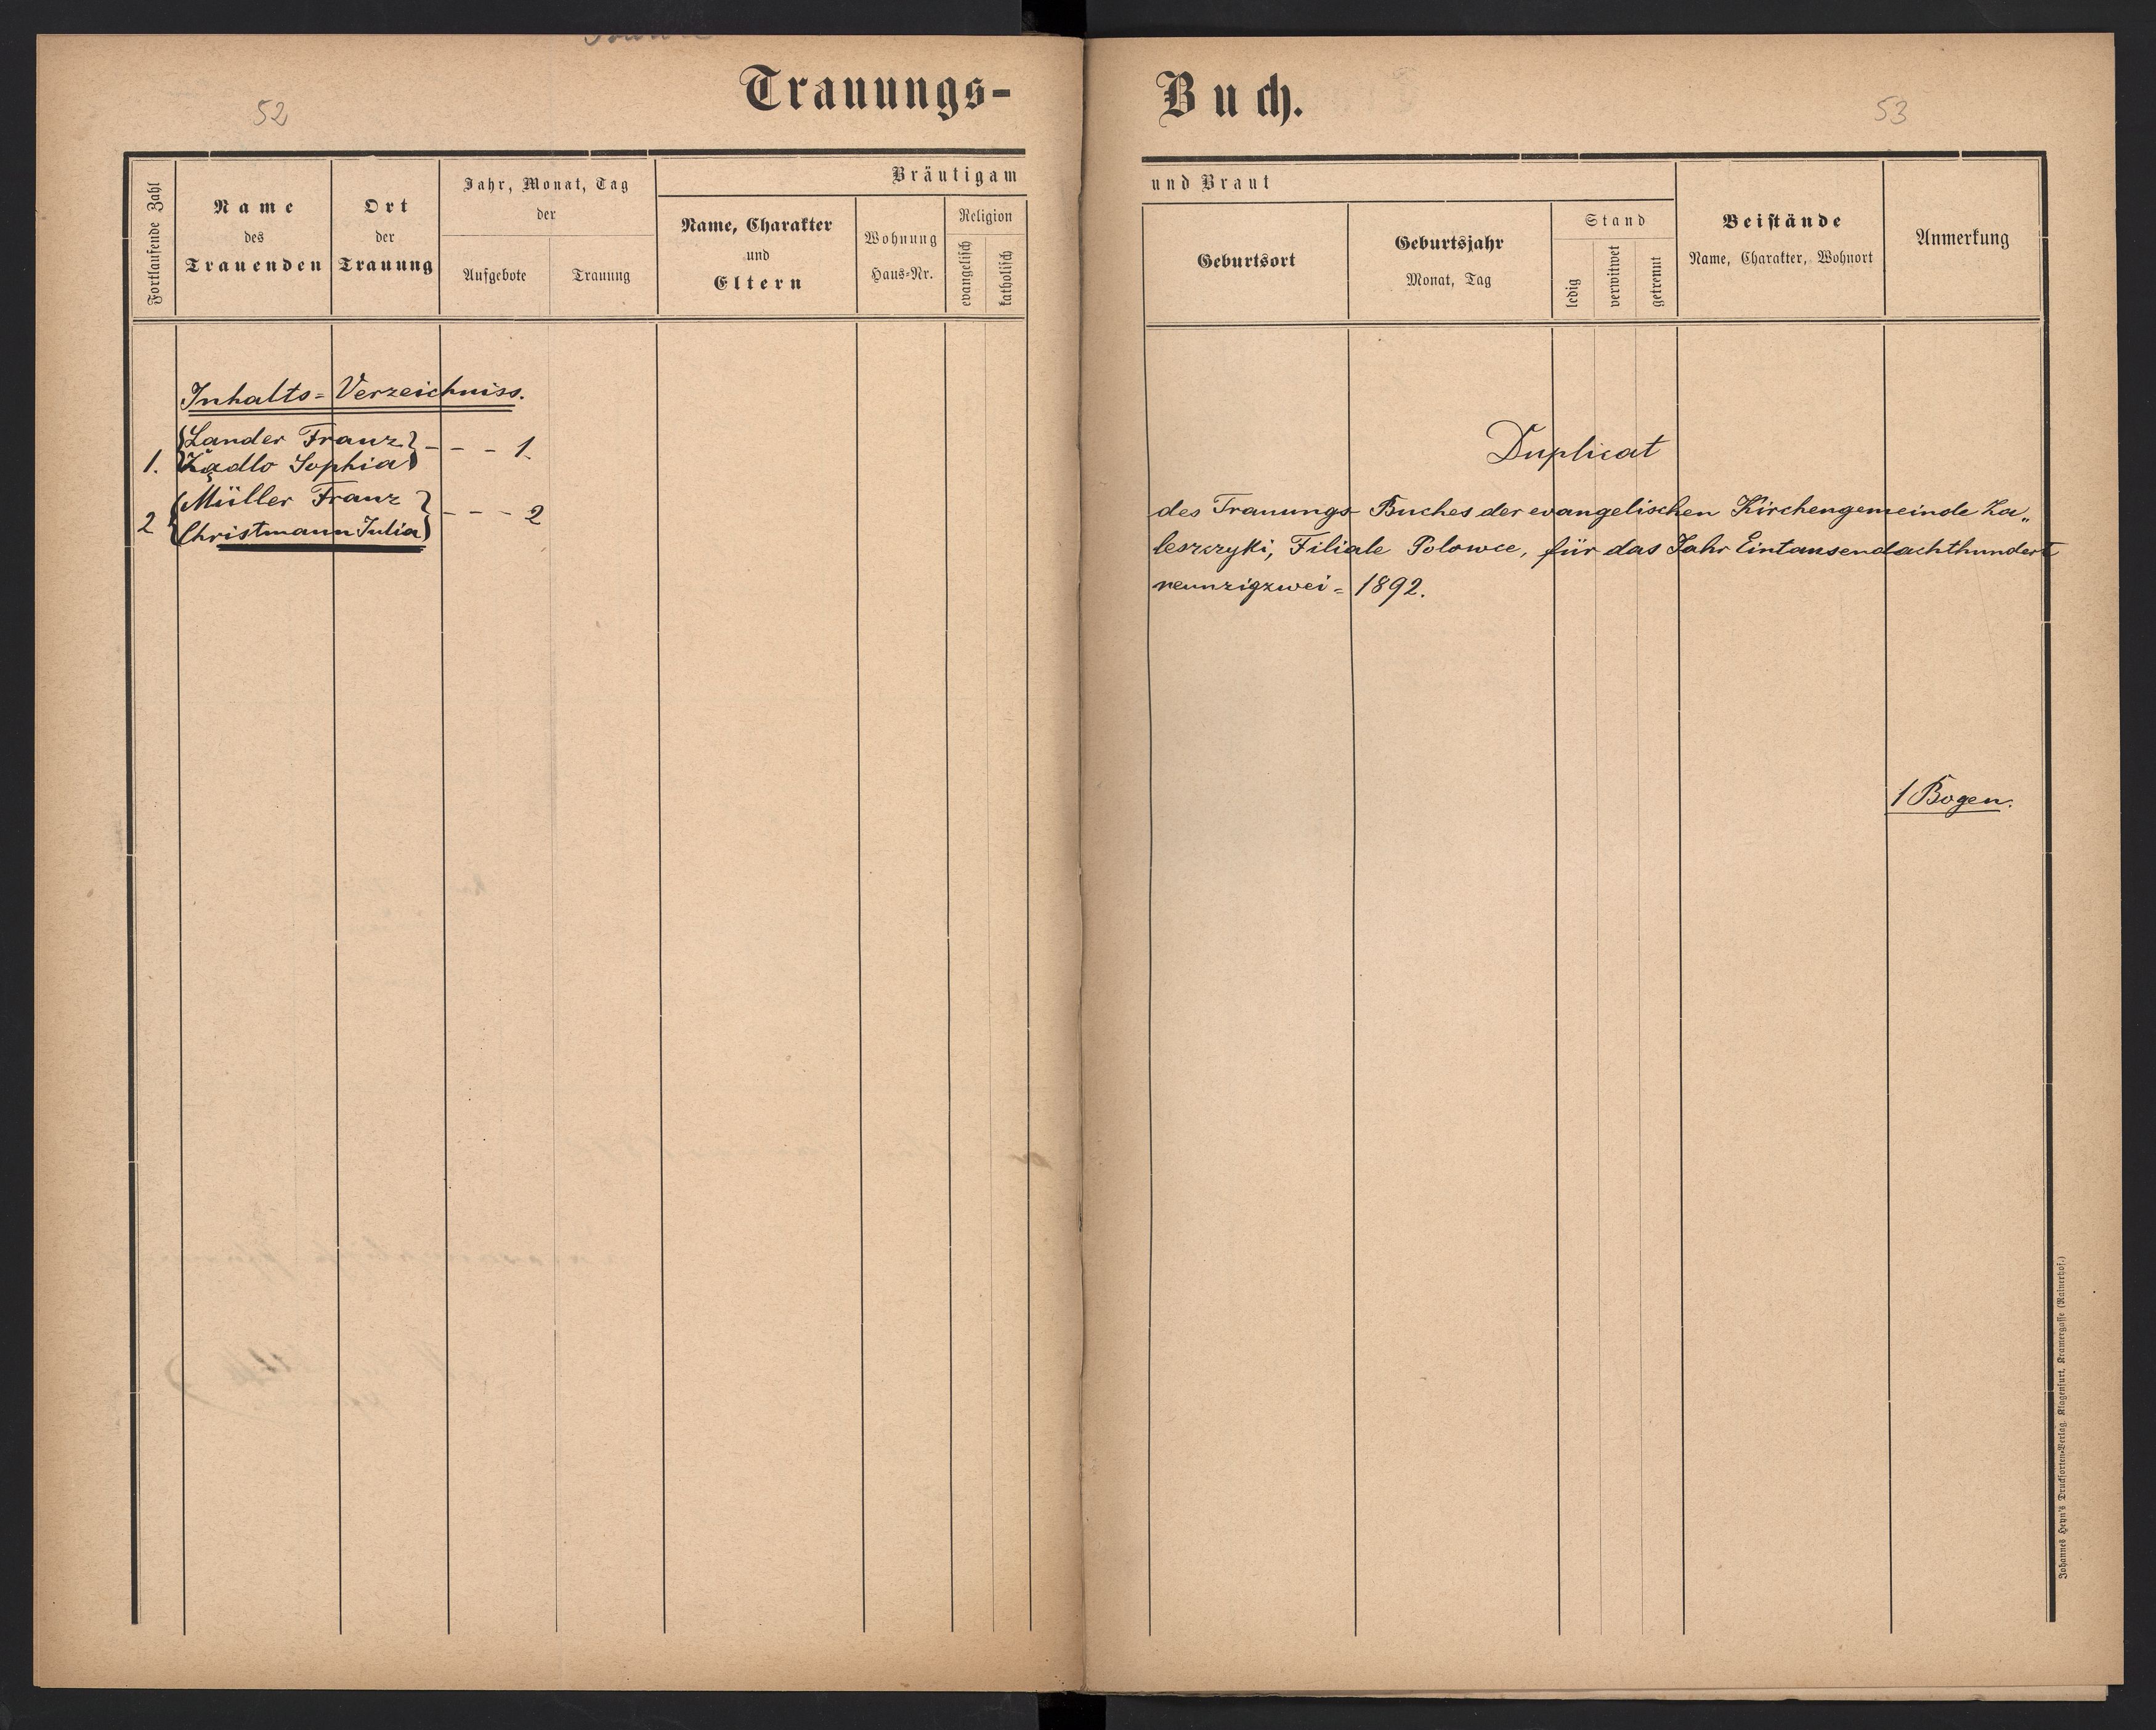 52
Trauungs-
Fortlaufende Zahl
Name
des
Trauenden
Ort
der
Trauung
Jahr, Monat, Tag
der
Aufgebote
Trauung
Bräutigam
Name, Charakter
und
Eltern
Wohnung
Haus-Nr.
Religion
evangelisch
katholisch
Inhalts=Verzeichniss.
1. Lander Franz
Żądlo Sophia - - - 1.
2 Müller Franz
Christmann Julia - - - 2
Buch.
53
und Braut
Geburtsort
Geburtsjahr
Monat, Tag
Stand
ledig
verwitwet
getrennt
Beistände
Name, Charakter, Wohnort
Anmerkung
Duplicat
des Trauungs- Buches der evangelischen Kirchengemeinde Za„
leszczyki, Filiale Polowce, für das Jahr Eintausendachthundert
neunzigzwei = 1892.
1 Bogen.
Johannes Heyn's Drucksorten-Verlag, Klagenfurt, Kramergasse (Rainerhof.)